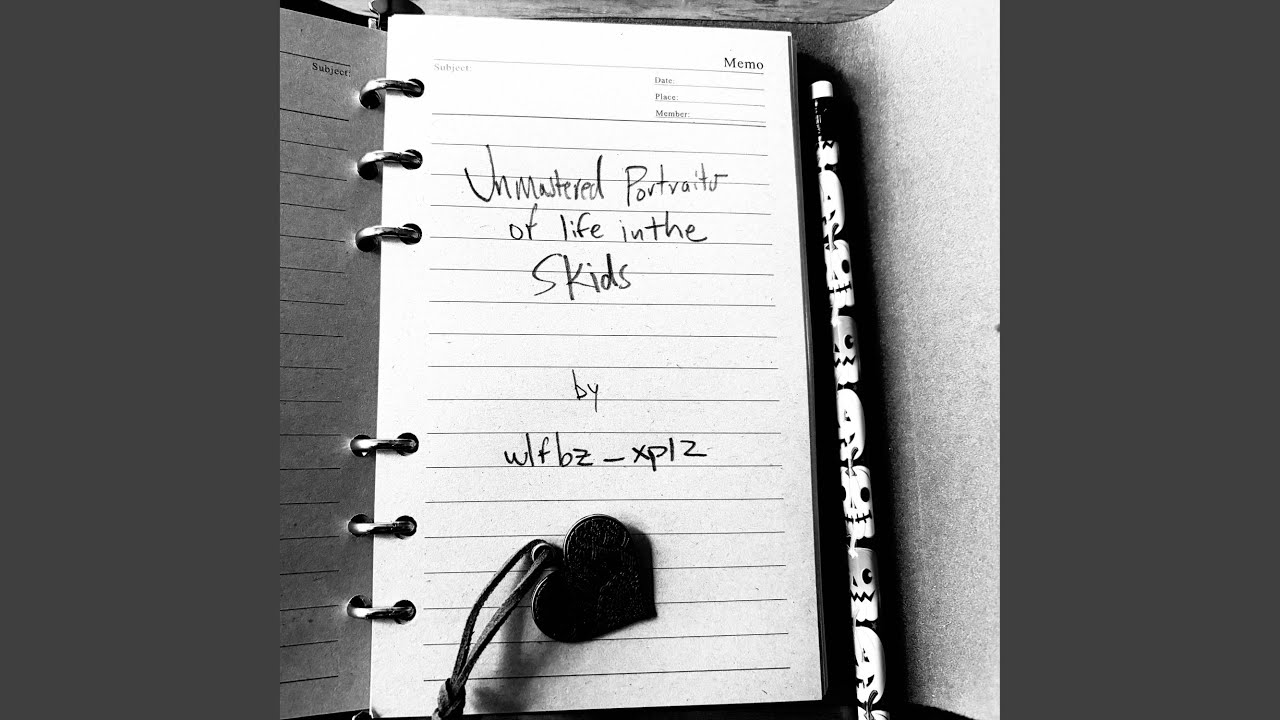 Subject:
Memo
Subject:
Date:
Place:
Member:
Unmastered Portraits
of life in the
Skids
by
wlfbz_xplz